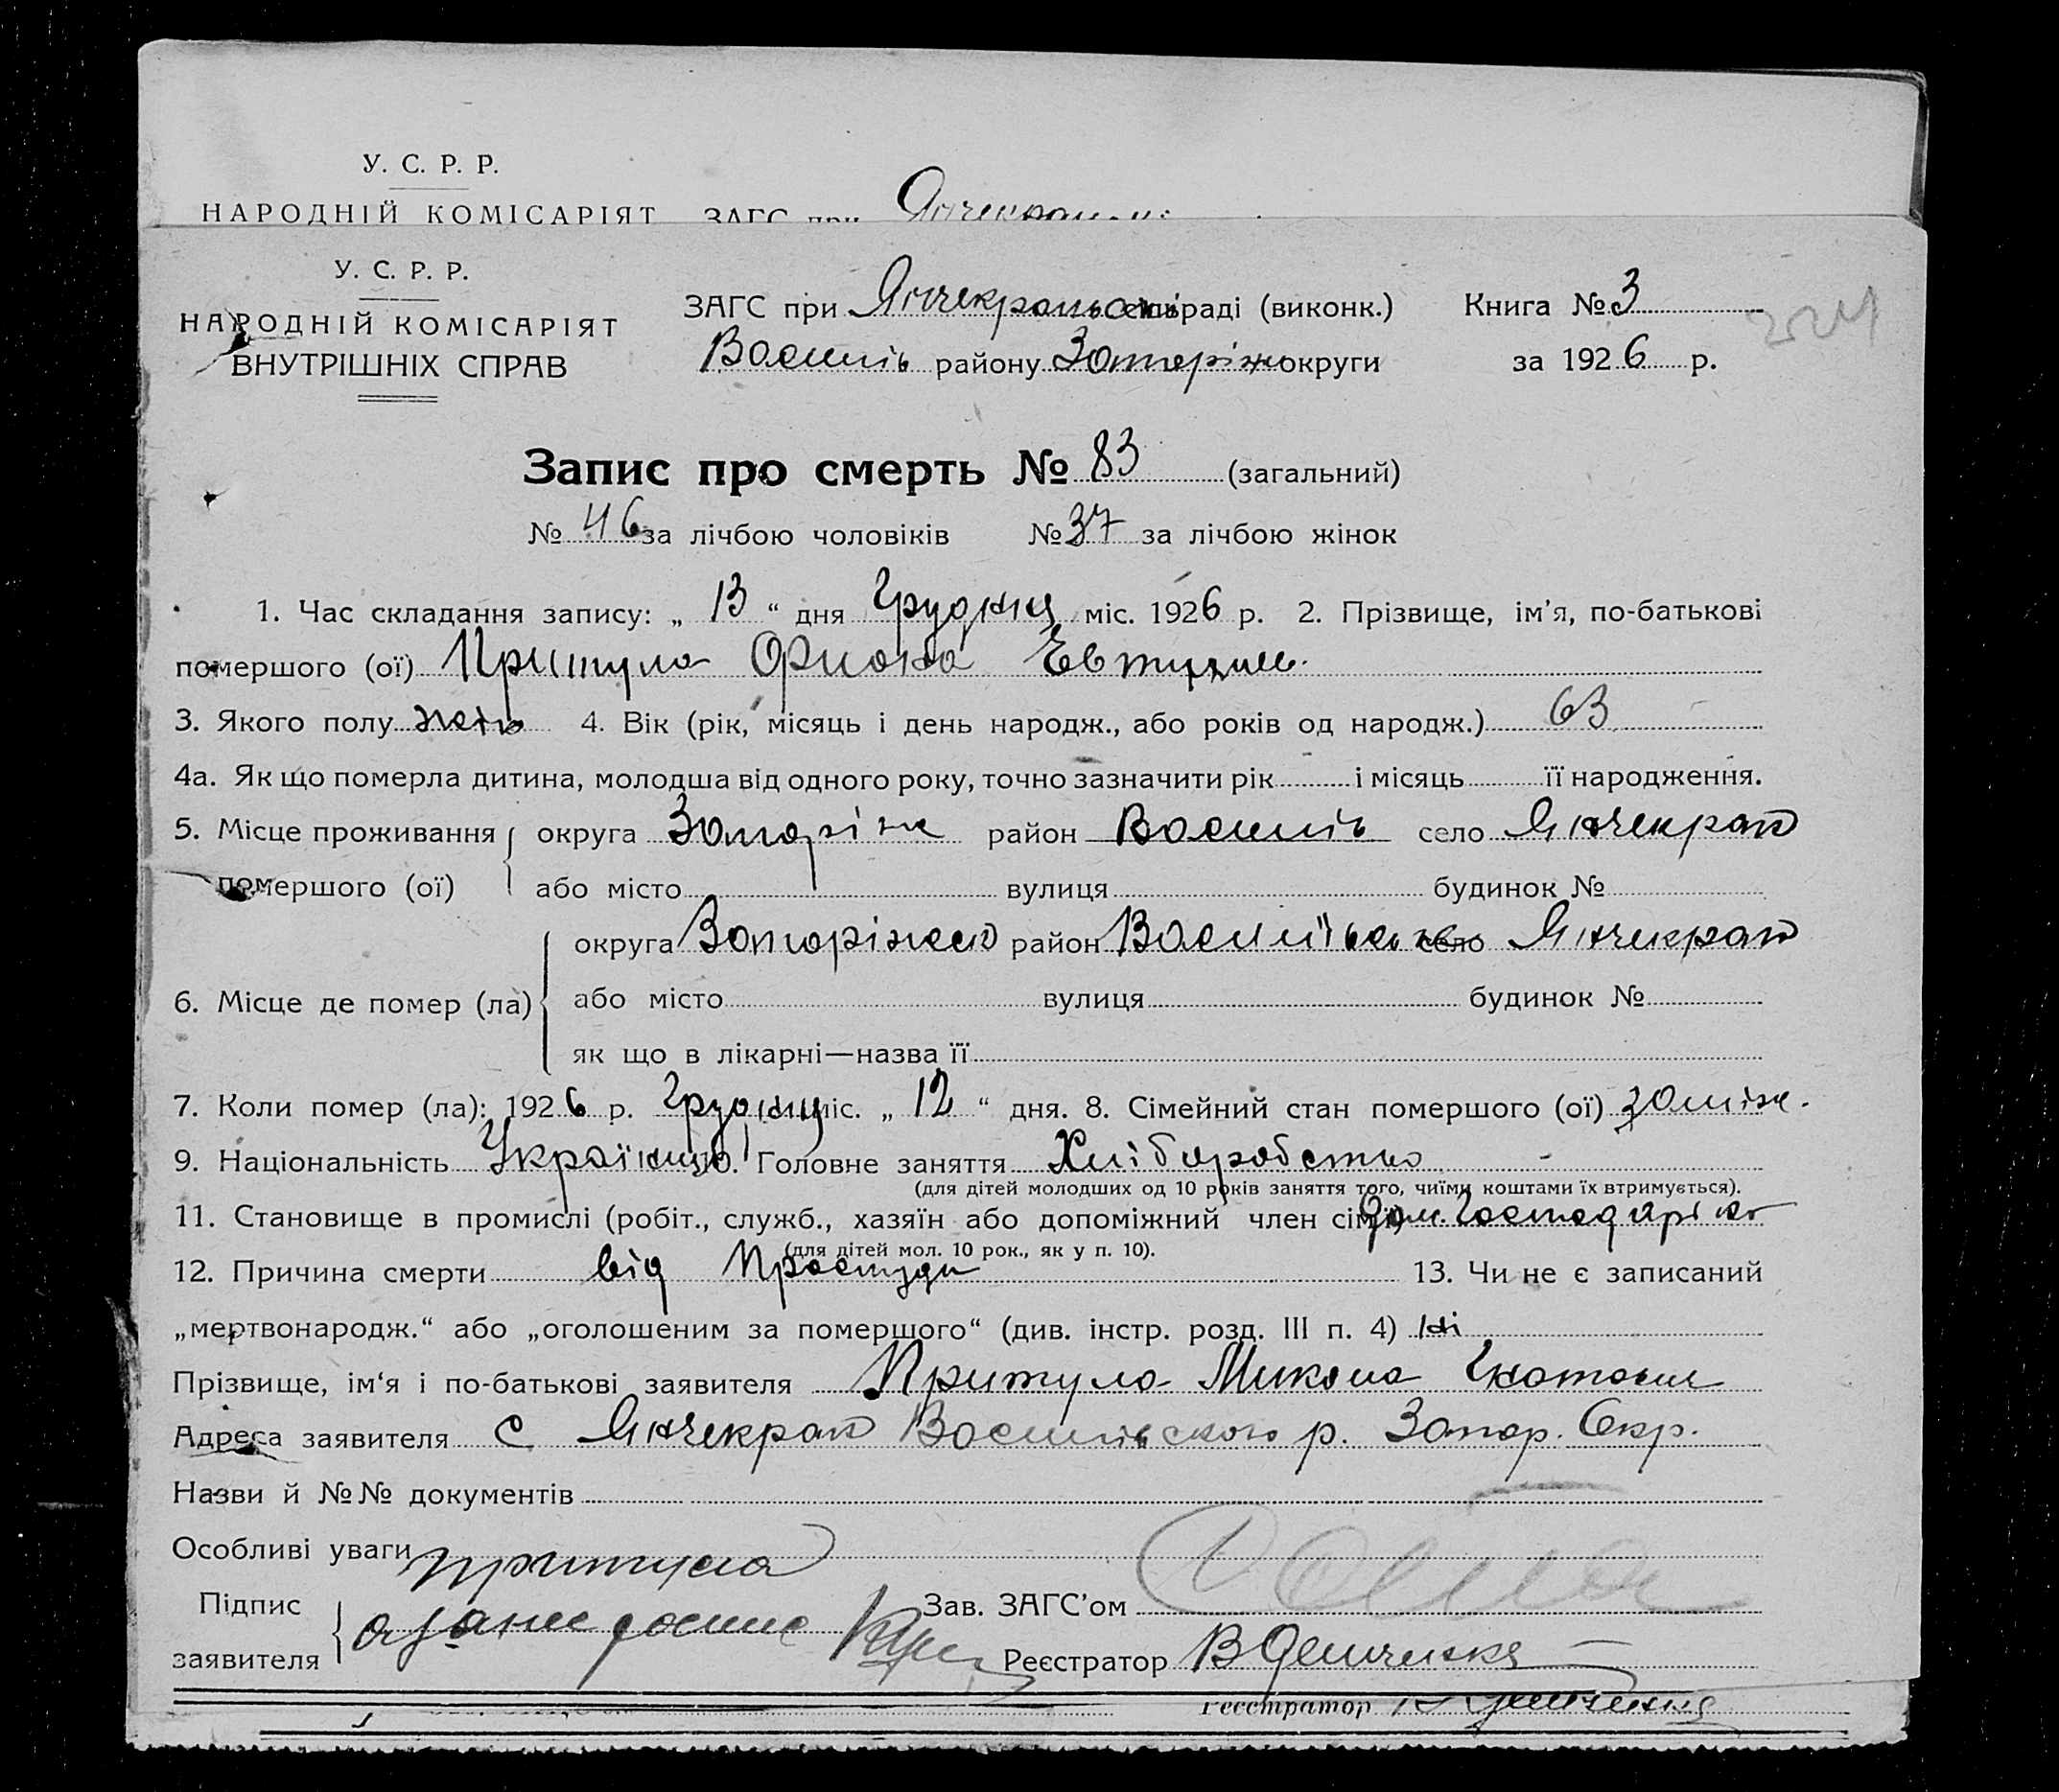 У. С. Р. Р.
НАРОДНІЙ КОМІСАРІЯТ ЗАГС при
У. С. Р. Р.
НАРОДНІЙ КОМІСАРІЯТ
ВНУТРІШНІХ СПРАВ
ЗАГС при Янчекрацькій сільраді (виконк.)
Василів району Запоріж округи
Книга № 3
за 1926 р.
224
Запис про смерть № 83 (загальний)
№ 46 за лічбою чоловіків № 37 за лічбою жінок
1. Час складання запису: „ 13 “ дня Грудня міс. 1926 р. 2. Прізвище, ім’я, по-батькові
помершого (ої) Притула
3. Якого полу жін 4. Вік (рік, місяць і день народж., або років од народж.) 63
4а. Як що померла дитина, молодша від одного року, точно зазначити рік і місяць її народження.
5. Місце проживання округа Запоріж район Василів село Янчекрак
помершого (ої) або місто вулиця будинок №
округа Запорізько район Василівськ село Янчекрак
6. Місце де помер (ла) або місто вулиця будинок №
як що в лікарні—назва її
7. Коли помер (ла): 1926 р. Грудня міс. „ 12 “ дня. 8. Сімейний стан помершого (ої) заміж.
9. Національність Українц 10. Головне заняття Хліборобство
(для дітей молодших од 10 років заняття того, чиїми коштами їх втримується).
11. Становище в промислі (робіт., служб., хазяїн або допоміжний член сім’ї) Дом. Господарка
(для дітей мол. 10 рок., як у п. 10).
12. Причина смерти від Простуди 13. Чи не є записаний
„мертвонародж.“ або „оголошеним за помершого“ (див. інстр. розд. III п. 4) ні
Прізвище, ім‘я і по-батькові заявителя Притула Микола
Адреса заявителя с Янчекрак Василівського р. Запор. Окр.
Назви й №№ документів
Особливі уваги
Підпис
заявителя
притула
Зав. ЗАГС’ом
Реєстратор
Реєстратор